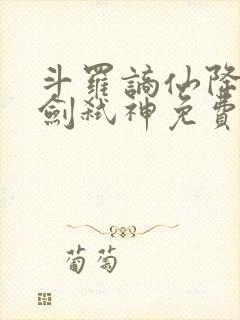 斗羅謫仙降
劍弒神免費
葡萄